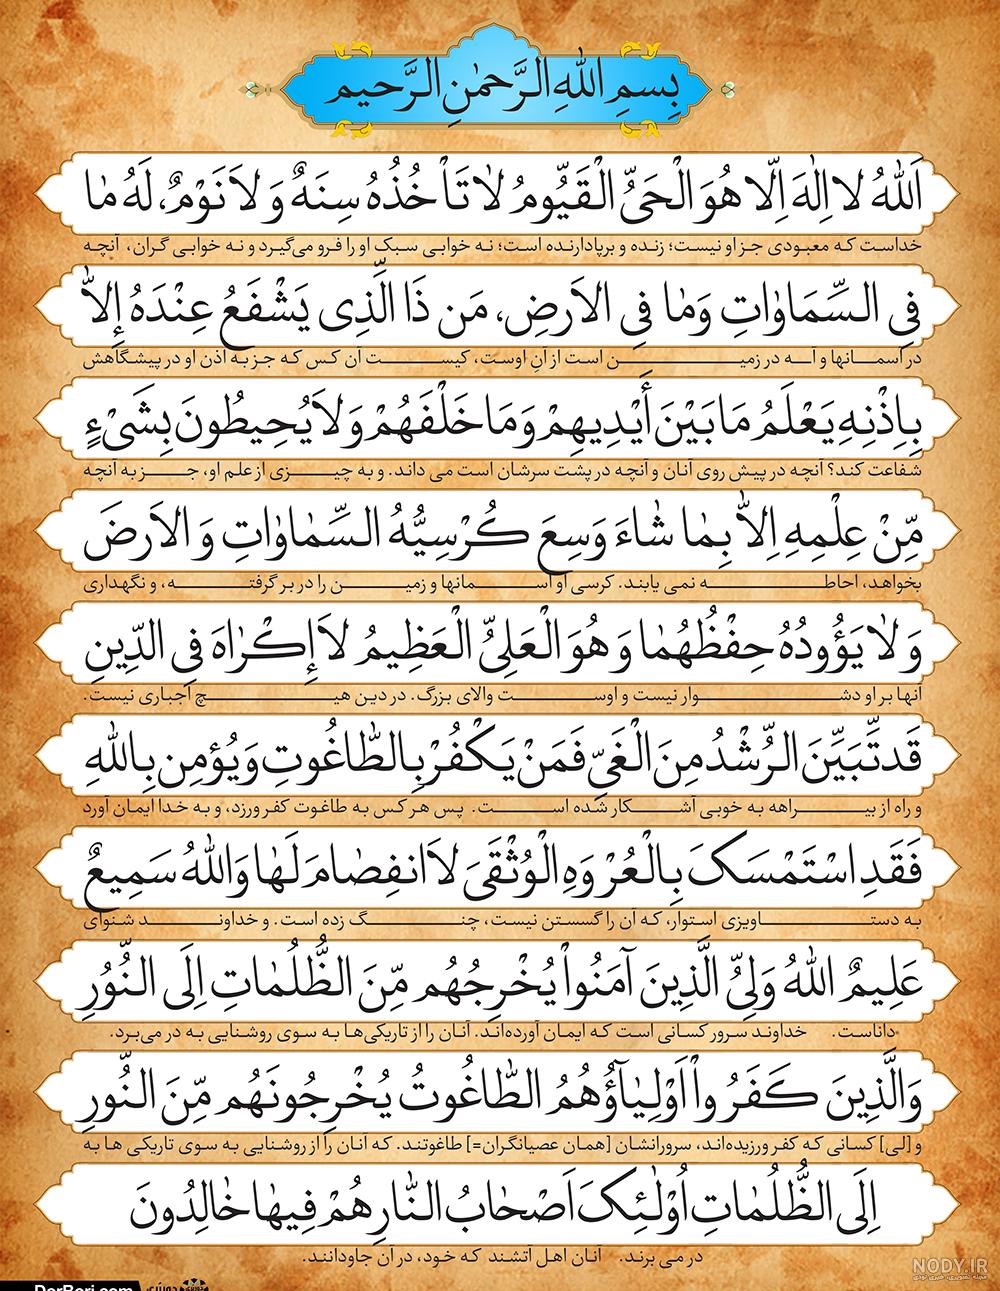 بِسمِ اللهِ الرَّحمٰنِ الرَّحیم
اَللهُ لا اِلٰهَ اِلّا هُوَ الْحَیُّ الْقَیُّومُ لاٰ تَأْخُذُهُ سِنَهٌ وَ لاَ نَوْمٌ، لَهُ مٰا
خداست که معبودی جز او نیست؛ زنده و برپادارنده است؛ نه خوابی سبک او را فرو می‌گیرد و نه خوابی گران، آنچه
فِی السِّمَاوٰاتِ وَمٰا فِی الاَرضِ، مَن ذَا الَّذِی یَشْفَعُ عِنْدَهُ إِلاّٰ
در آسمانها و آـه در زمیـن است از آنِ اوست، کیست آن کس که جز به اذن او در پیشگاهش
بِاِذْنِهِ یَعْلَمُ مَا بَیْنَ أَیْدِیهِمْ وَمَا خَلْفَهُمْ وَلاَ یُحِیطُونَ بِشَیْءٍ
شفاعت کند؟ آنچه در پیش روی آنان و آنچه در پشت سرشان است می داند. و به چیـزی از علم او، جـز به آنچه
مِّنْ عِلْمِهِ اِلاّٰ بِمٰا شٰاءَ وَسِعَ کُرْسِیُّهُ السِّمٰاوٰاتِ وَ الاَرضَ
بخواهد، احاطـه نمی یابند. کرسی او آسـمانها و زمیـن را در بر گرفتـه، و نگهداری
وَ لاٰ یَؤُودُهُ حِفْظُهُمٰا وَ هُوَ الْعَلِیُّ الْعَظِیمُ لاَ إِکْرَاهَ فِی الدِّینِ
آنها بر او دشـوار نیست و اوسـت والای بزرگ. در دین هیـچ اجباری نیست.
قَد تَّبَیِّنَ الرُّشْدُ مِنَ الْغَیِّ فَمَنْ یَکْفُرْ بِالطّٰاغُوتِ وَیُؤمِن بِاللهِ
و راه از بیـراهه به خوبی آشـکار شده اسـت. پس هر کس به طاغوت کفر ورزد، و به خدا ایمان آورد
فَقَدِ اسْتَمْسَکَ بِالْعُرْوَهِ الْوُثْقَیَ لاَ انفِصٰامَ لَهٰا وَاللهُ سَمِیعٌ
به دستـاویزی استوار، که آن را گسستن نیست، چنـگ زده است. و خداونـد شنوای
عَلِیمٌ اللهُ وَلِیُّ الَّذِینَ آمَنُواْ یُخْرِجُهُم مِّنَ الظُّلُمٰاتِ اِلَی النُّوُرِ
داناست. خداوند سرور کسانی است که ایمان آورده‌اند. آنان را از تاریکی‌ها به سوی روشنایی به در می‌برد.
وَالَّذِینَ کَفَرُواْ اَوْلِیٰآؤُهُمُ الطّٰاغُوتُ یُخْرِجُونَهُم مِّنَ النُّورِ
و [لی] کسانی که کفر ورزیده‌اند، سرورانشان [همان عصیانگران=] طاغوتند. که آنان را از روشنایی به سوی تاریکی ها به
اِلَی الظُّلُمٰاتِ اُوْلٰئِکَ اَصْحٰابُ النّٰارِ هُمْ فِیهٰا خٰالِدُونَ
در می برند. آنان اهل آتشند که خود، در آن جاودانند.
NODY.IR